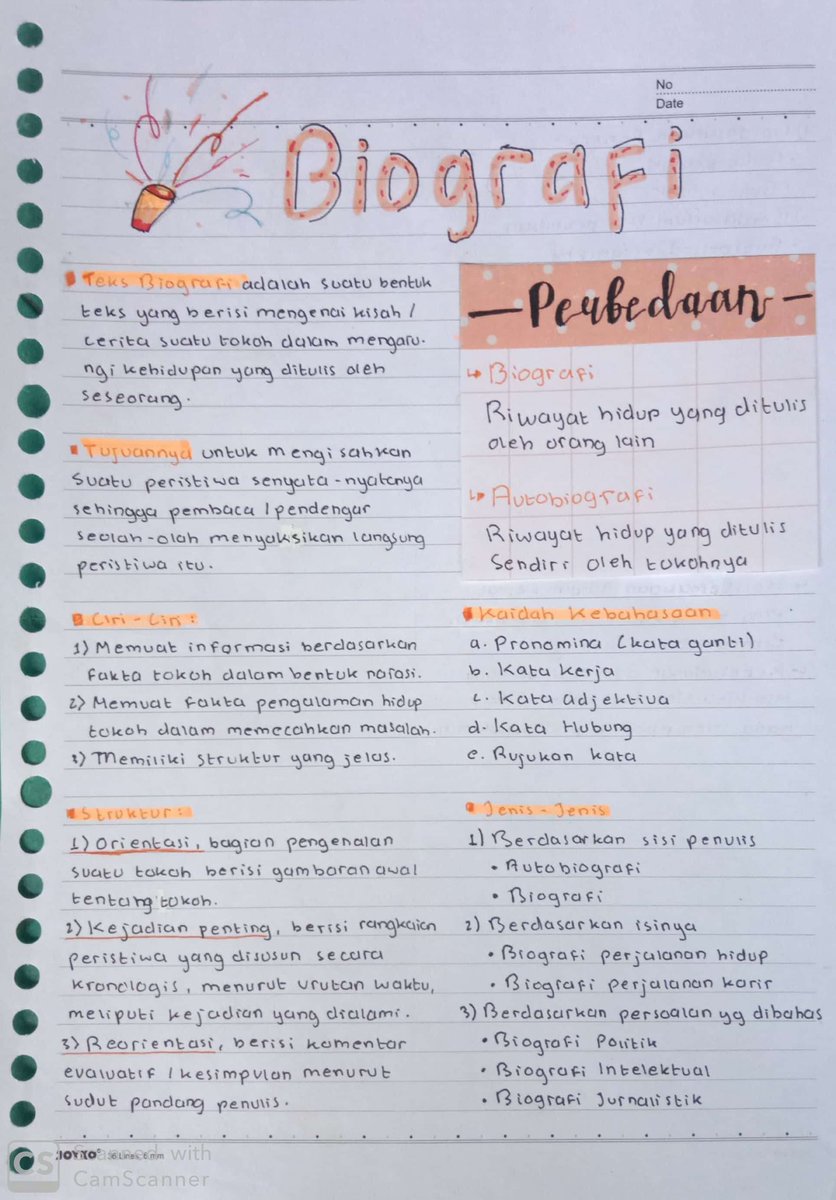 No
Date
Biografi
Teks Biografi adalah suatu bentuk
teks yang berisi mengenai kisah /
cerita suatu tokoh dalam mengaru-
ngi kehidupan yang ditulis oleh
seseorang.
Tujuannya untuk mengisahkan
suatu peristiwa senyata-nyatanya
sehingga pembaca / pendengar
seolah-olah menyaksikan langsung
peristiwa itu.
— Perbedaan —
↳ Biografi
Riwayat hidup yang ditulis
oleh orang lain
↳ Autobiografi
Riwayat hidup yang ditulis
Sendiri oleh tokohnya
Ciri - Ciri :
1) Memuat informasi berdasarkan
fakta tokoh dalam bentuk narasi.
2) Memuat fakta pengalaman hidup
tokoh dalam memecahkan masalah.
3) Memiliki struktur yang jelas.
Kaidah Kebahasaan
a. Pronomina (kata ganti)
b. Kata kerja
c. Kata adjektiva
d. Kata Hubung
e. Rujukan kata
Struktur :
1) Orientasi, bagian pengenalan
suatu tokoh berisi gambaran awal
tentang tokoh.
2) Kejadian penting, berisi rangkaian
peristiwa yang disusun secara
kronologis, menurut urutan waktu,
meliputi kejadian yang dialami.
3) Reorientasi, berisi komentar
evaluatif / kesimpulan menurut
sudut pandang penulis.
Jenis - Jenis
1) Berdasarkan sisi penulis
• Autobiografi
• Biografi
2) Berdasarkan isinya
• Biografi perjalanan hidup
• Biografi perjalanan karir
3) Berdasarkan persoalan yg dibahas
• Biografi Politik
• Biografi Intelektual
• Biografi Jurnalistik
JOYKO 26 Lines, 6 mm
CS Scanned with
CamScanner